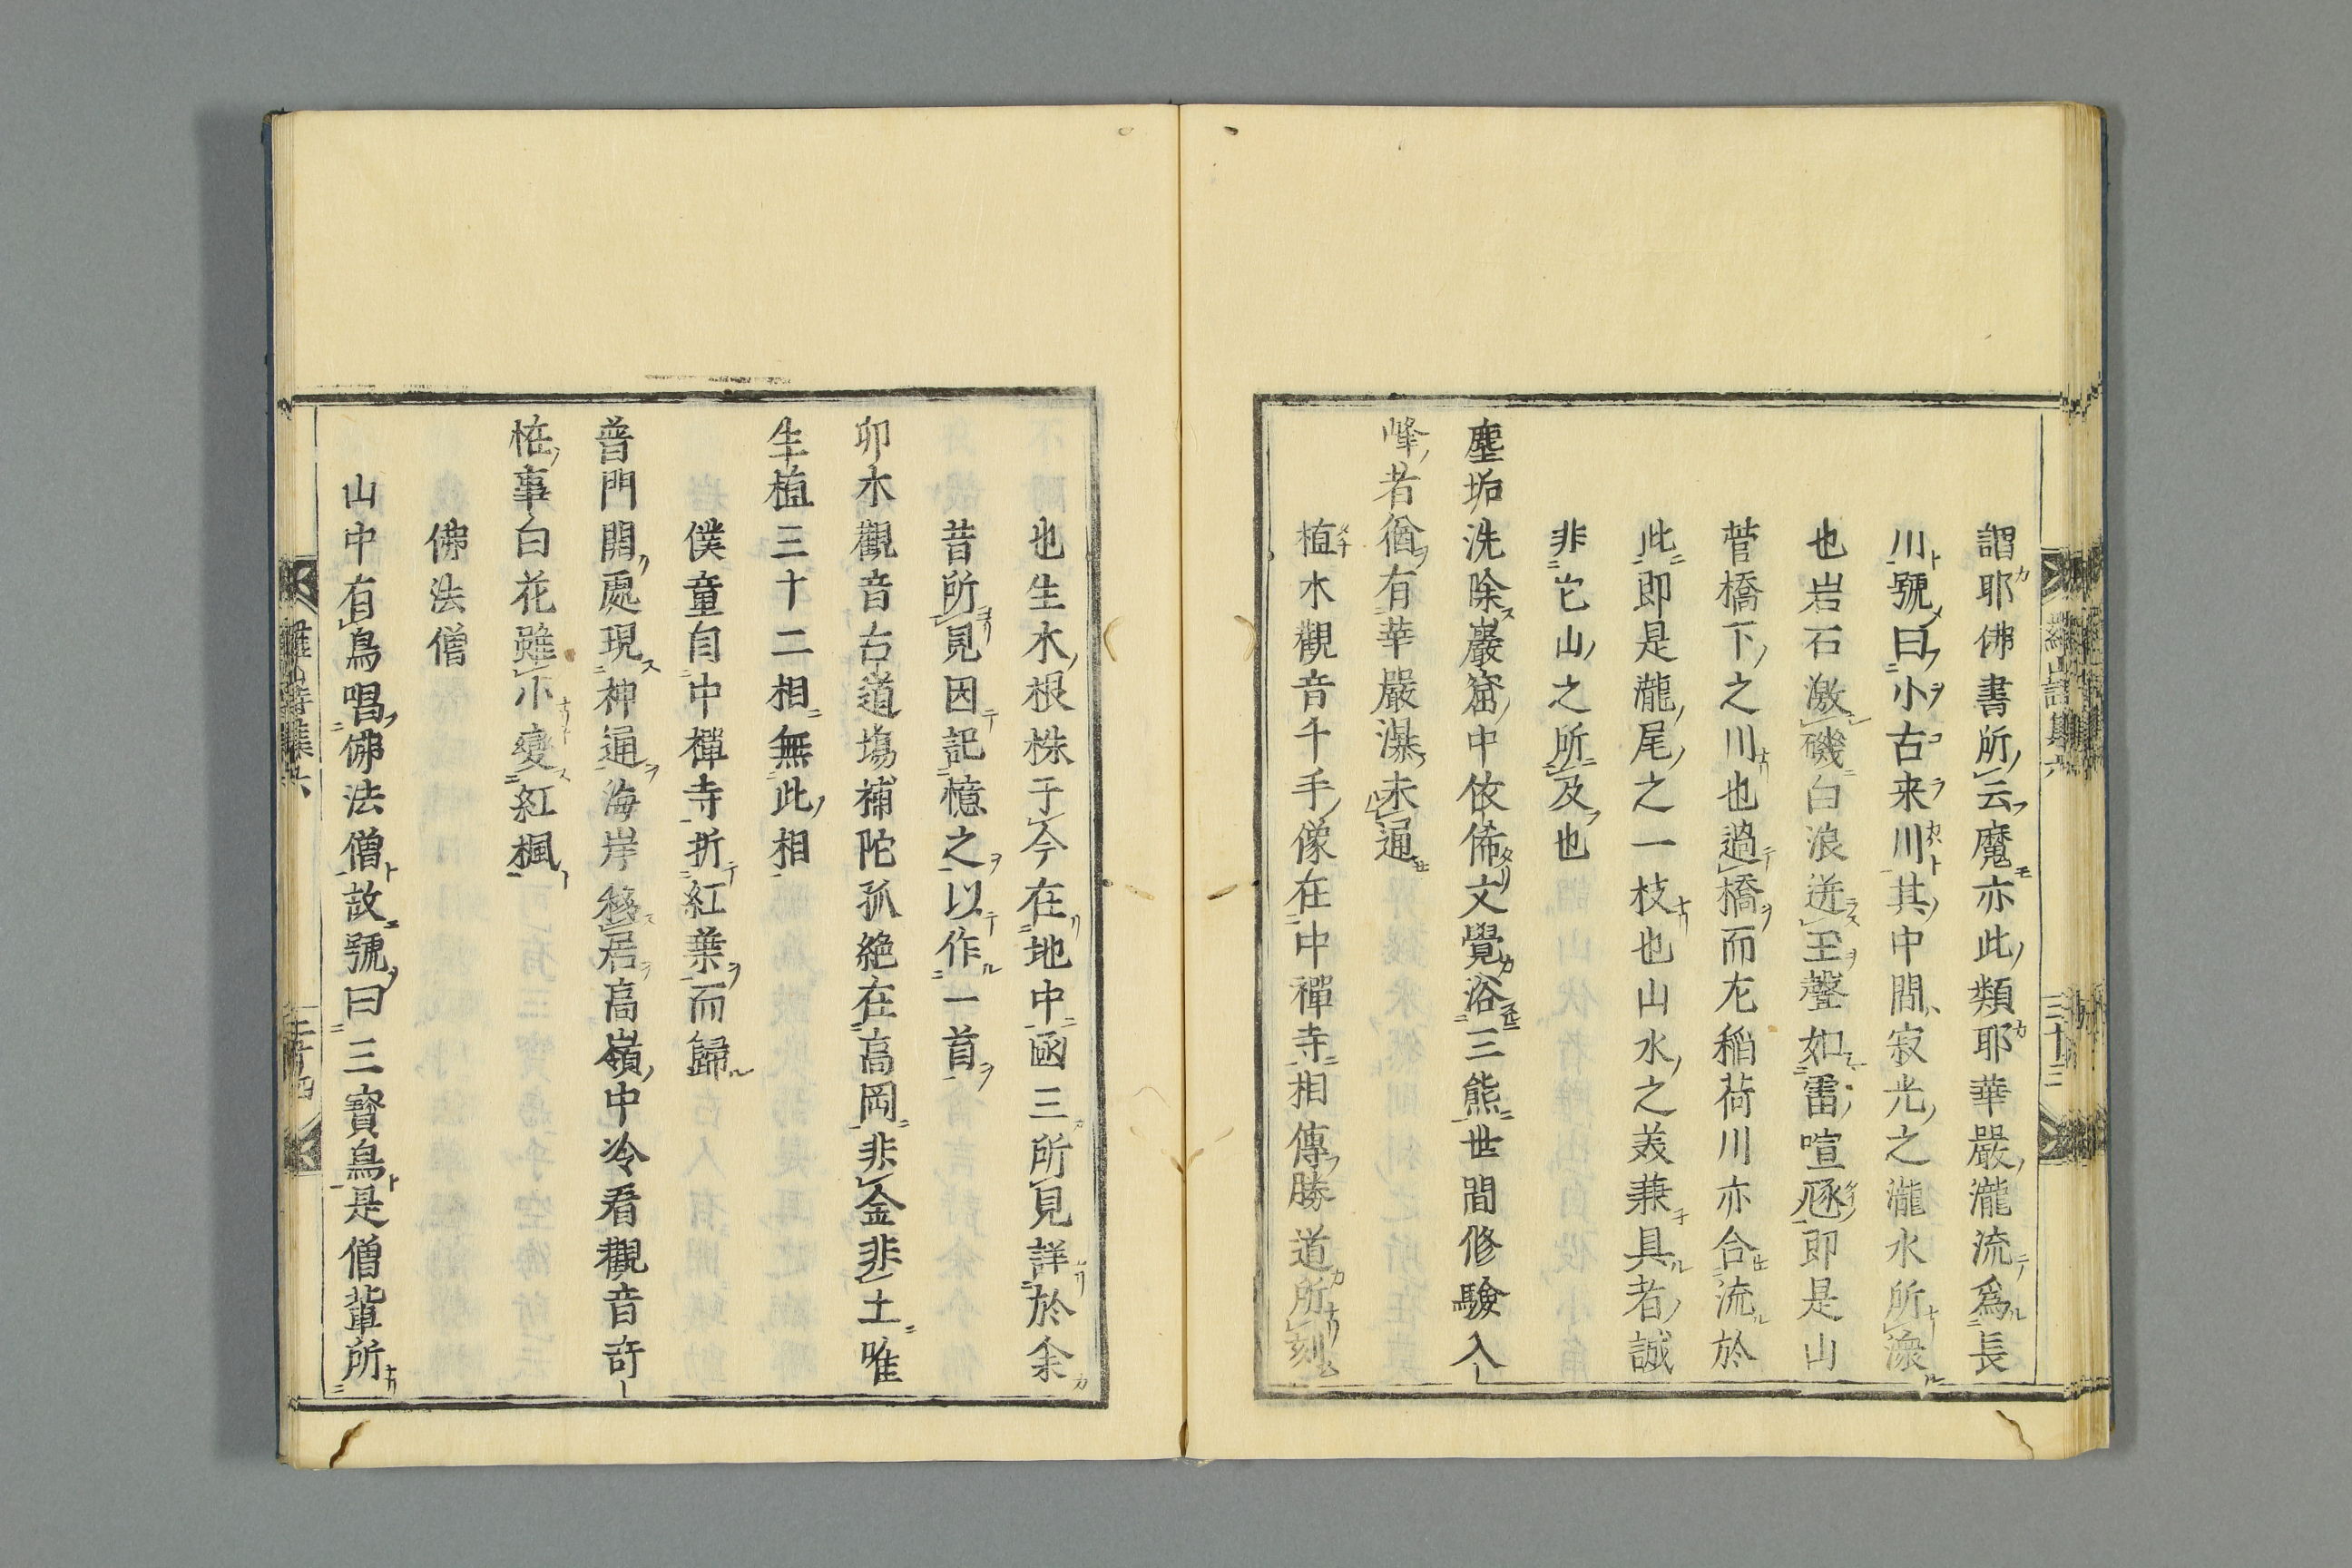 謂耶佛書所云魔亦此類耶華嚴瀧流爲長
川號曰小古来川其中間寂光之瀧水所湶
也岩石激磯白浪迸玉聲如雷喧豗即是山
菅橋下之川也過橋而左稲荷川亦合流於
此即是瀧尾之一枝也山水之美兼具者誠
非它山之所及也
塵垢洗除巖窟中依俙文覺浴三熊世間修驗入
峰者猶有華嚴瀑未通
植木觀音千手像在中禪寺相傳勝道所刻
也生木根株于今在地中函三所見詳於余
昔所見因記憶之以作一首
卯木觀音古道場補陀孤絶在高岡非金非土唯
生植三十二相無此相
僕童自中禪寺折紅葉而歸
普門開處現神通海岸移居高嶺中冷看觀音奇
恠事白花雖小變紅楓
佛法僧
山中有鳥唱佛法僧故號曰三寳鳥是僧輩所
羅山詩集六
三十三
羅山詩集六
三十四